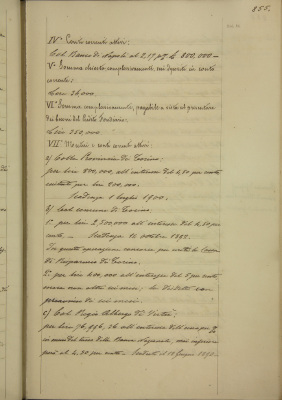 855.
IV° Conti correnti attivi:
Col Banco di Napoli al 2,19 p% £ 800,000 –
V° Somma dovuta complessivamente, nei depositi in conto
corrente:
Lire 26,000
VI° Somma complessivamente, pagabile a vista al
dei buoni del Credito fondiario.
Lire 250,000.
VII° Mutui e conti correnti attivi:
a) Colla Provincia di Torino.
per lire 800,000, all'interesse del 4,50 per cento
per lire 200,000.
Scadenza 1 luglio 1900.
b) Col comune di Torino
1° per lire 2,500,000 all'interesse del 4,50 per
cento – Scadenza 16 ottobre 1892.
In questa operazione concorre per metà la Cassa
di Risparmio di Torino.
2° per lire 400,000 all'interesse del 5 per cento
ancora
di sei mesi.
c) Col Regio Albergo di Virtù
per lire 96,956,26 all'interesse dell'
della Banca Nazionale, mai inferiore
però al 4.50 per cento – Scadenza al 10 Giugno 1892.